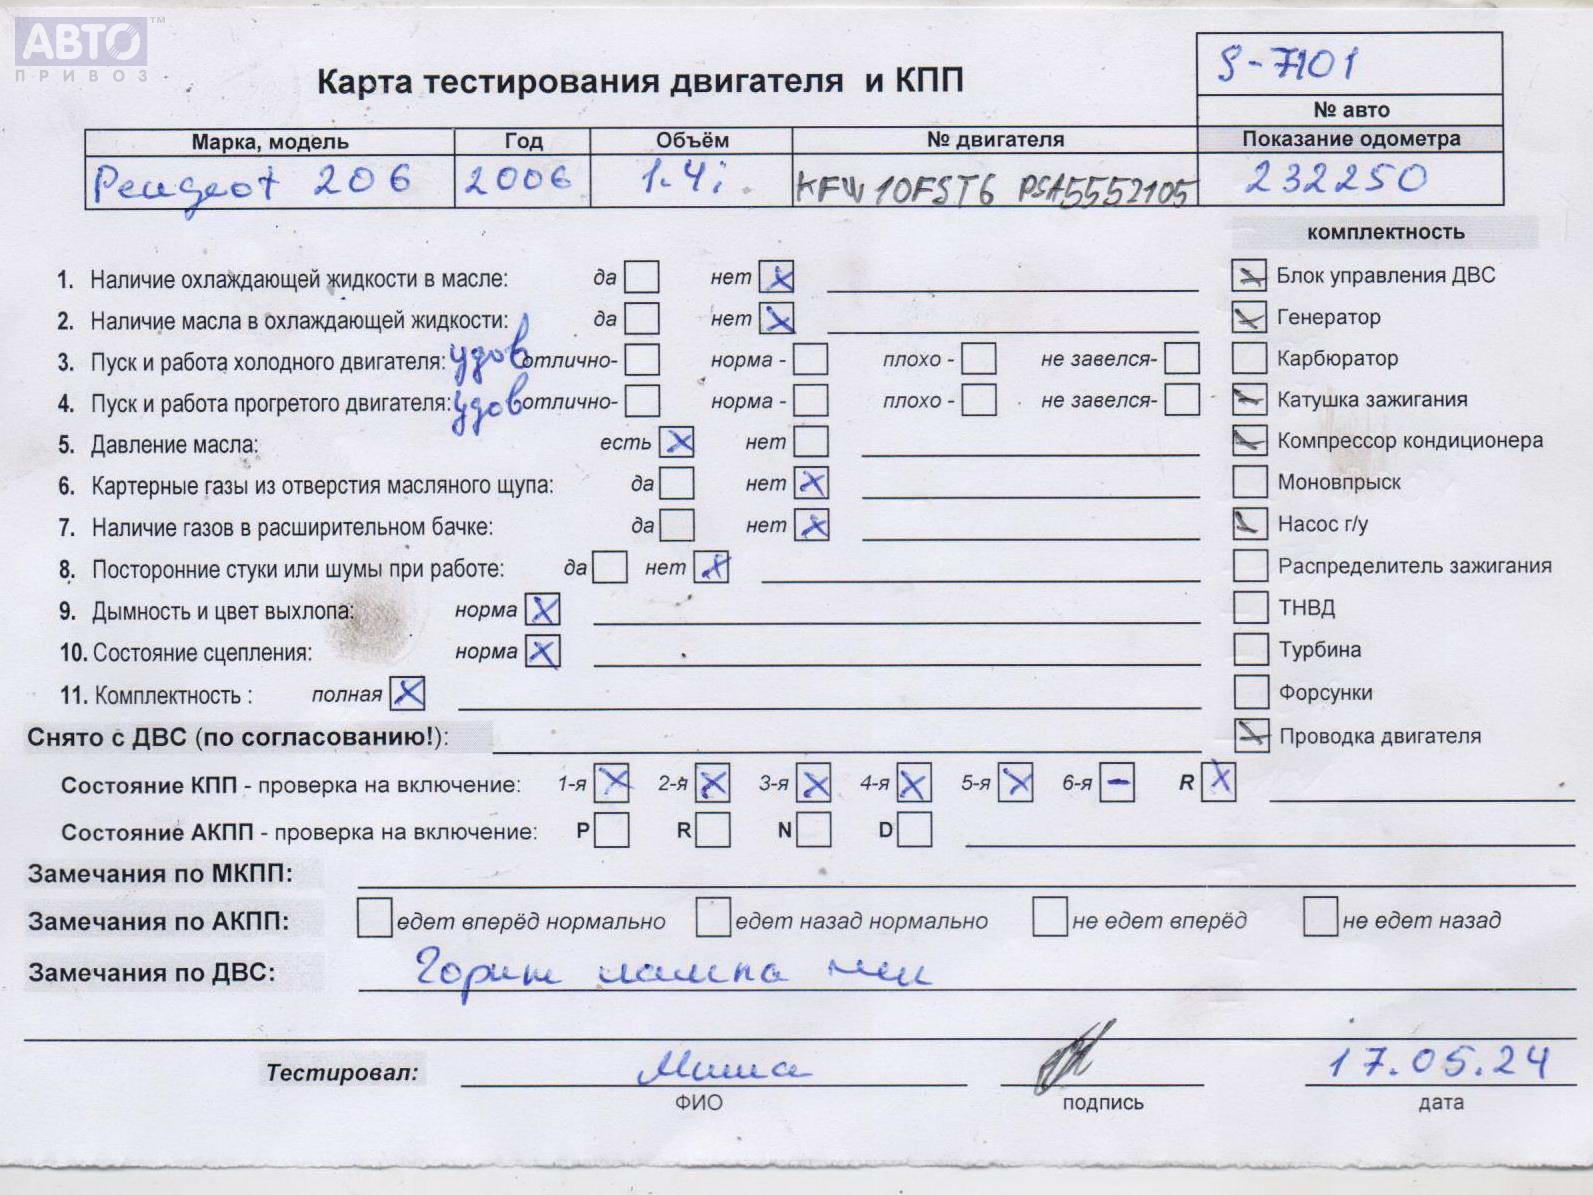 АВТО™
ПРИВОЗ
S-7101
Карта тестирования двигателя и КПП
№ авто
Марка, модель Год Объём № двигателя Показание одометра
Peugeot 206 2006 1.4i KFW 10FST6 PSA5552105 232250
комплектность
1. Наличие охлаждающей жидкости в масле: да нет
Блок управления ДВС
2. Наличие масла в охлаждающей жидкости: да нет
Генератор
3. Пуск и работа холодного двигателя: удов отлично- норма - плохо - не завелся-
Карбюратор
4. Пуск и работа прогретого двигателя: удов отлично- норма - плохо - не завелся-
Катушка зажигания
5. Давление масла: есть нет
Компрессор кондиционера
6. Картерные газы из отверстия масляного щупа: да нет
Моновпрыск
7. Наличие газов в расширительном бачке: да нет
Насос г/у
8. Посторонние стуки или шумы при работе: да нет
Распределитель зажигания
9. Дымность и цвет выхлопа: норма
ТНВД
10. Состояние сцепления: норма
Турбина
11. Комплектность : полная
Форсунки
Снято с ДВС (по согласованию!):
Проводка двигателя
Состояние КПП - проверка на включение: 1-я 2-я 3-я 4-я 5-я 6-я R
Состояние АКПП - проверка на включение: P R N D
Замечания по МКПП:
Замечания по АКПП: едет вперёд нормально едет назад нормально не едет вперёд не едет назад
Замечания по ДВС: Горит лампа
Тестировал: Миша 17.05.24
ФИО подпись дата